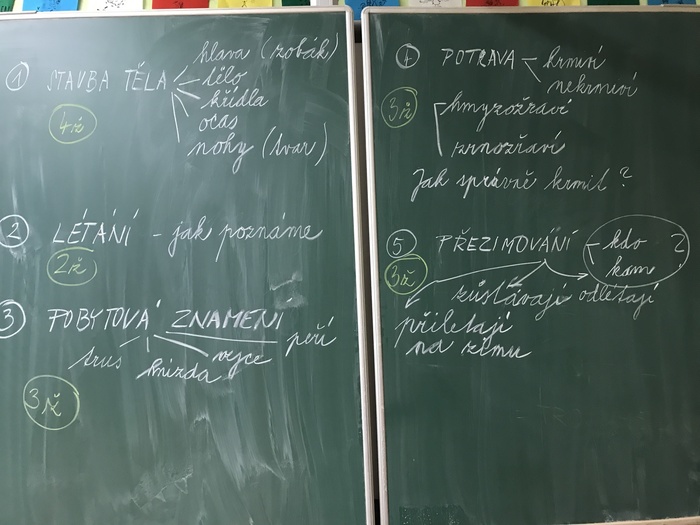 1 STAVBA TĚLA
hlava (zobák)
tělo
křídla
ocas
nohy (tvar)
4ž
2 LÉTÁNÍ - jak poznáme
2ž
3 POBYTOVÁ ZNAMENÍ
trus
hnízda
vejce
peří
3ž
4 POTRAVA
krmiví
nekrmiví
3ž
hmyzožraví
zrnožraví
Jak správně krmit?
5 PŘEZIMOVÁNÍ
kdo
kam
?
3ž
zůstávají
odlétají
přiletají
na zimu